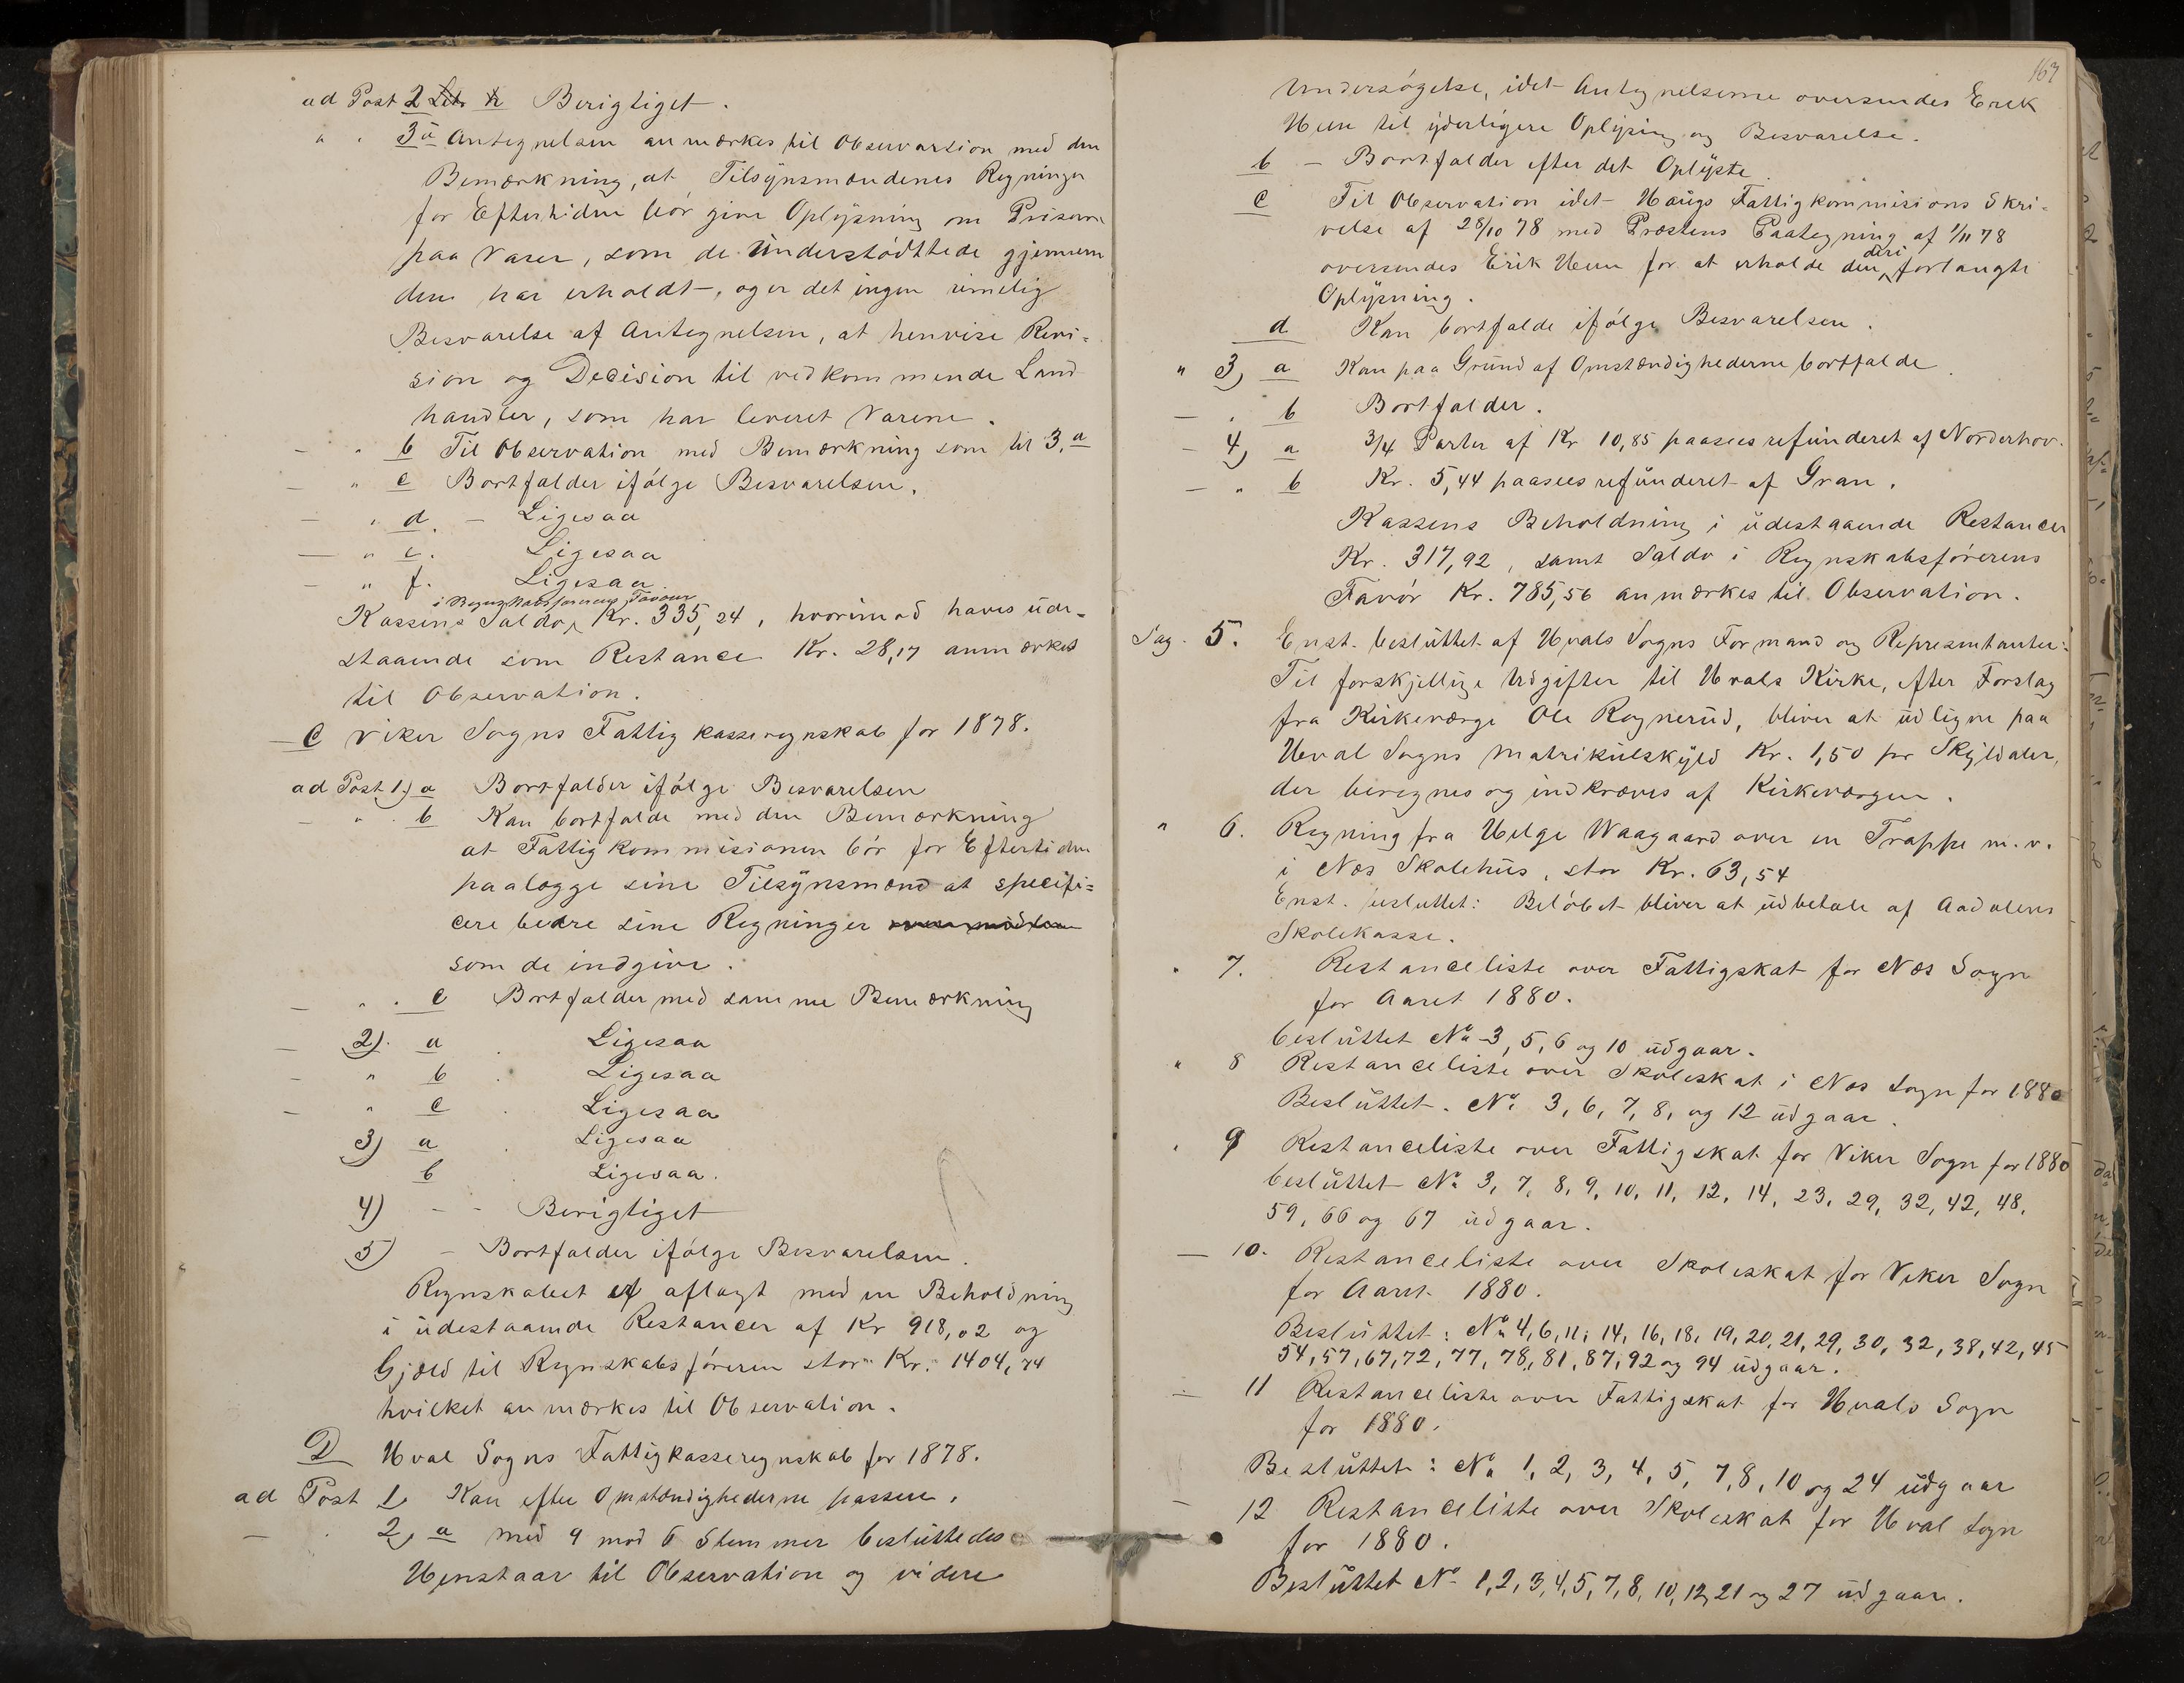 ad Post 2 Berigtiget.
" " 3 a Antegnelsen anmærkes til Observation med den
Bemærkning, at Tilsynsmændenes Regninger
for Eftertiden bör give Oplysning om Priserne
paa Varer, som de Understöttede gjennem
dem har erholdt, og er det ingen rimelig
Besvarelse af Antegnelsen, at henvise Revi-
sion og Decision til vedkommende Land
handler, som har leveret Varene.
- " b Til Observation med Bemærkning som til 3. a
- " c Bortfalder ifölge Besvarelsen.
- " d. - Ligesaa
- " e. Ligesaa
- " f. Ligesaa
i Regnskabsförerens Favour
Kassens Saldo Kr. 335,24, hvorimod haves ude-
staaende som Restance Kr. 28,17 anmærkes
til Observation.
- C Viker Sogns Fattigkasseregnskab for 1878.
ad Post 1.) a Bortfalder ifölge Besvarelsen
- " b Kan bortfalde med den Bemærkning
at Fattigkommisionen bör for Eftertiden
paalægge sine Tilsynsmænd at specifi=
cere bedre sine Regninger
som de indgive.
- " . c Bortfalder med samme Bemærkning
- 2). a . Ligesaa
- " b . Ligesaa
- " c . Ligesaa
3) a . Ligesaa
b Ligesaa.
4) - - Berigtiget
5) - Bortfalder ifölge Besvarelsen.
Regnskabet er aflagt med en Beholdning
i udestaaende Restancer af Kr 918,02 og
Gjæld til Regnskabsföreren stor Kr. 1404,74
hvilket anmærkes til Observation.
D Hval Sogns Fattigkasseregnskab for 1878.
ad Post 1. Kan efter Omstændighederne passere.
- . 2, a med 9 mod 6 Stemmer besluttedes
Henstaar til Observation og videre
167
Undersögelse, idet Antegnelserne oversendes Erik
Hem til yderligere Oplysning og Besvarelse.
b - Bortfalder efter det Oplyste.
c Til Observation idet Haugs Fattigkommisions Skri-
velse af 28/10 78 med Præstens Paategning af 1/11 78
oversendes Erik Hem for at erholde den deri forlangte
Oplysning.
d Kan bortfalde ifölge Besvarelsen.
" 3) a Kan paa Grund af Omstændighederne bortfalde.
- . b Bortfalder.
- 4) a 3/4 Parter af Kr 10,85 paasees refunderet af Norderhov.
- " b Kr. 5,44 paasees refunderet af Gran.
Kassens Beholdning i udestaaende Restancer
Kr. 317,92, samt Saldo i Regnskabsförerens
Favör Kr. 785,56 anmærkes til Observation.
Sag. 5. Enst. besluttet af Hvals Sogns Formand og Representanter:
Til forskjellige Udgifter til Hvals Kirke, efter Forslag
fra Kirkeværge Ole Rognerud, bliver at udligne paa
Hval Sogns Matrikulskyld Kr. 1,50 pr Skylddaler,
der beregnes og indkræves af Kirkeværgen.
" 6. Regning fra Helge Waagaard over en Trappe m.v.
i Næs Skolehus, stor Kr. 63,54
Enst. besluttet: Belöbet bliver at udbetale af Aadalens
Skolekasse.
" 7. Restanceliste over Fattigskat for Næs Sogn
for Aaret 1880.
besluttet No 3, 5, 6 og 10 udgaar.
" 8 Restanceliste over Skoleskat i Næs Sogn for 1880
Besluttet. No 3, 6, 7, 8, og 12 udgaar.
" 9 Restanceliste over Fattigskat for Viker Sogn for 1880
besluttet No 3, 7, 8, 9, 10, 11, 12, 14, 23, 29, 32, 42, 48,
59, 66 og 67 udgaar.
- 10. Restanceliste over Skoleskat for Viker Sogn
for Aaret 1880.
Besluttet: No 4, 6, 11, 14, 16, 18, 19, 20, 21, 29, 30, 32, 38, 42, 45
54, 57, 67, 72, 77, 78, 81, 87, 92 og 94 udgaar.
- 11 Restanceliste over Fattigskat for Hvals Sogn
for 1880.
Besluttet: No 1, 2, 3, 4, 5, 7, 8, 10 og 24 udgaar
- 12 Restanceliste over Skoleskat for Hval Sogn
for 1880.
Besluttet No 1, 2, 3, 4, 5, 7, 8, 10, 12, 21 og 27 udgaar.